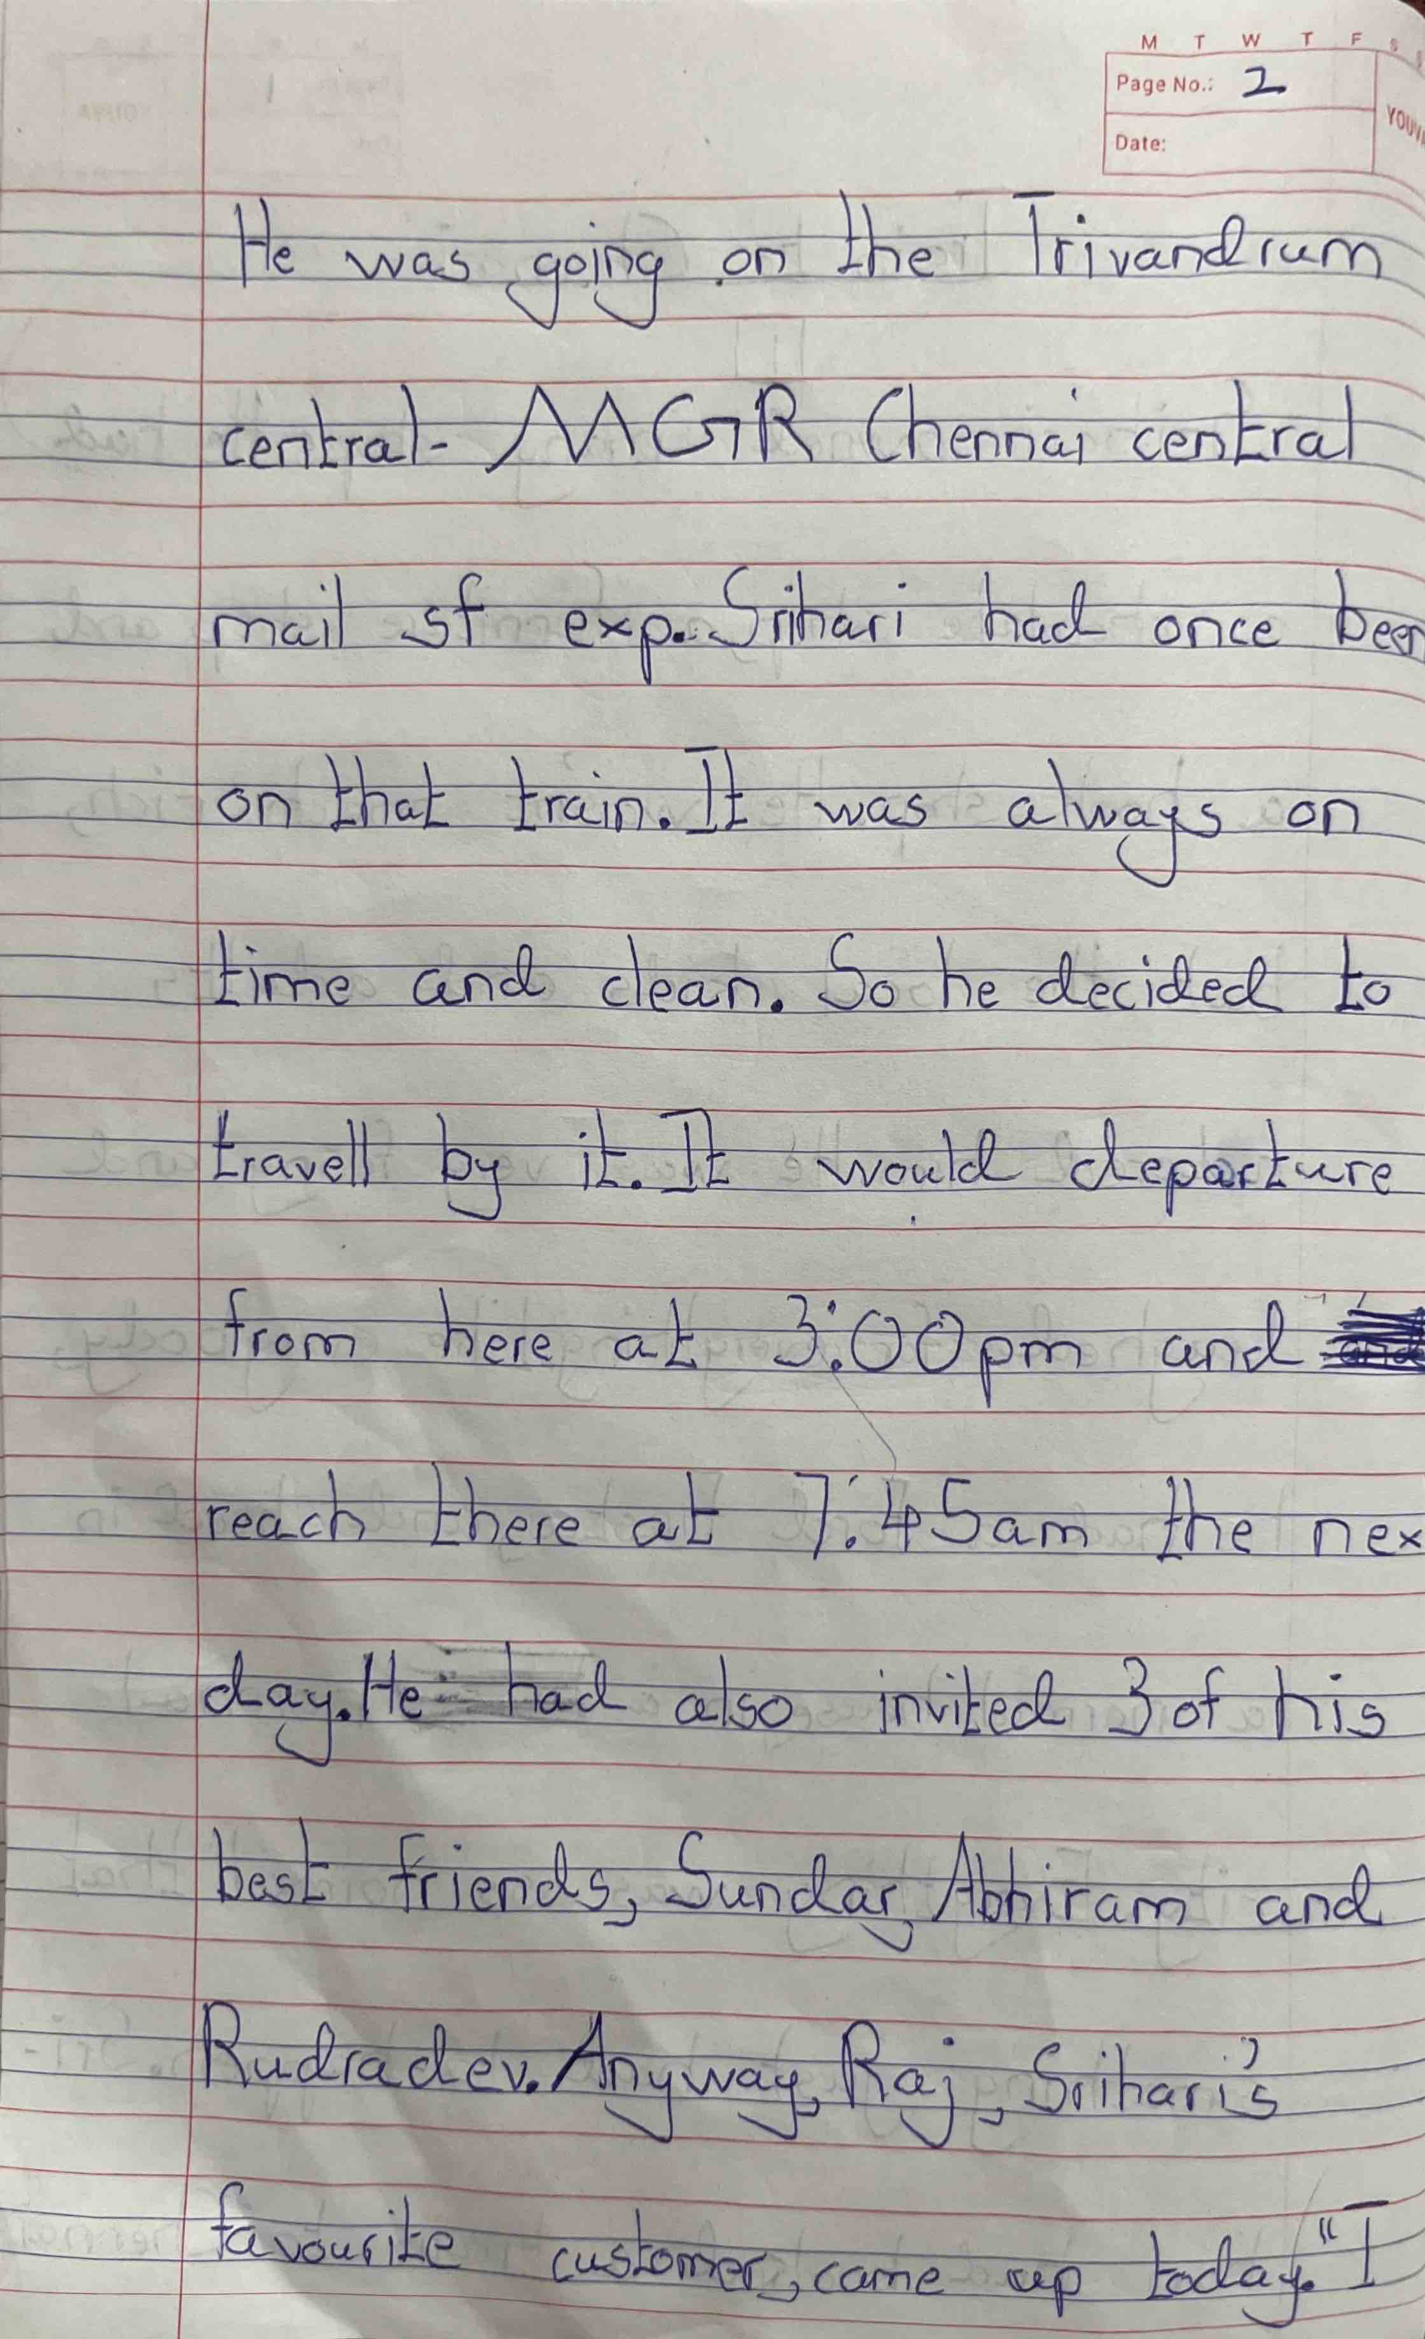 M T W T F S
Page No.: 2
YOUVA
Date:
He was going on the Trivandrum
central- MGR Chennai central
mail sf exp. Srihari had once been
on that train. It was always on
time and clean. So he decided to
travell by it. It would departure
from here at 3:00pm and
reach there at 7:45am the nex
day. He had also invited 3 of his
best friends, Sundar, Abhiram and
Rudradev. Anyway, Raj, Srihari's
favourite customer, came up today. "I